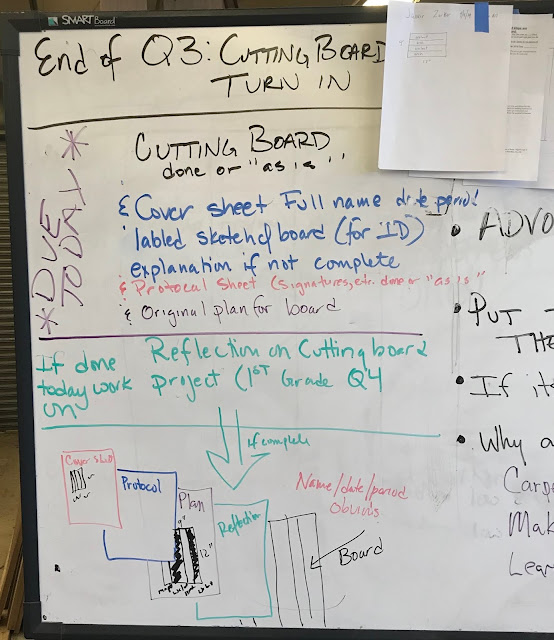 SMART Board
End of Q3: Cutting Board
Turn in
Cutting Board
done or "as is"
* DUE TODAY *
& Cover sheet Full name date period!
labled sketch of board (for ID)
explanation if not complete
& Protocal Sheet (signatures, etc. done or "as is"
& Original plan for board
If done
today work
on
Reflection on Cutting board
project (1ST Grade Q4
if complete
Cover
Protocol
Plan
9"
12"
Reflection
Name/date/period
Board
• ADVO
• PUT
THE
• If it
• Why a
Carpe
Mak
Lear